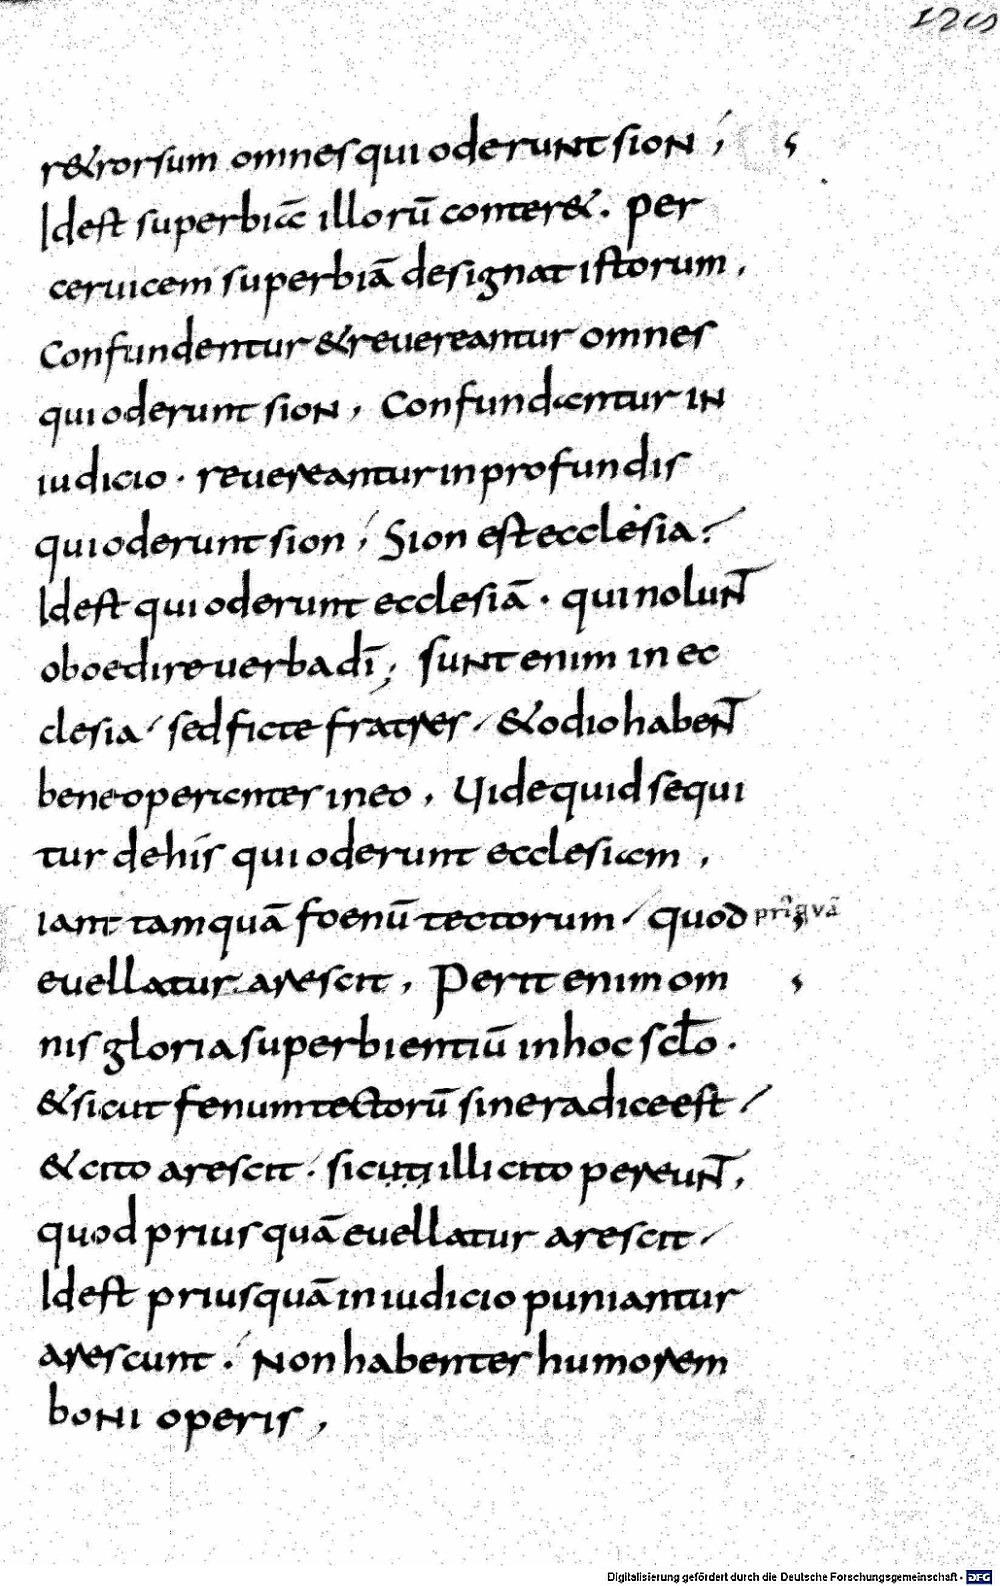 129
r&rorsum omnes qui oderunt sion ;
Idest superbiā illorū conter&. per
ceruicem superbiā designat istorum,
Confundentur & reuereantur omnes
qui oderunt sion, Confundantur in
iudicio · reuereantur in profundis
qui oderunt sion ; Sion est ecclesia ·
Idest qui oderunt ecclesiā · qui nolun̄
oboedire uerba dī; sunt enim in ec
clesia / sed ficte fratres / & odio haben̄
bene operanter in eo, Uide quid sequi
tur de his qui oderunt ecclesiam,
iant tamquā foenū tectorum / quod priꝰqvā
euellatur arescit, Perit enim om
nis gloria superbientiū in hoc scl̄o ·
& sicut fenum tectorū sine radice est /
& cito arescit · sicuti illi cito pereun̄,
quod prius quā euellatur arescit /
Idest priusquā in iudicio puniantur
arescunt · Non habenter humorem
boni operis,
Digitalisierung gefördert durch die Deutsche Forschungsgemeinschaft - DFG